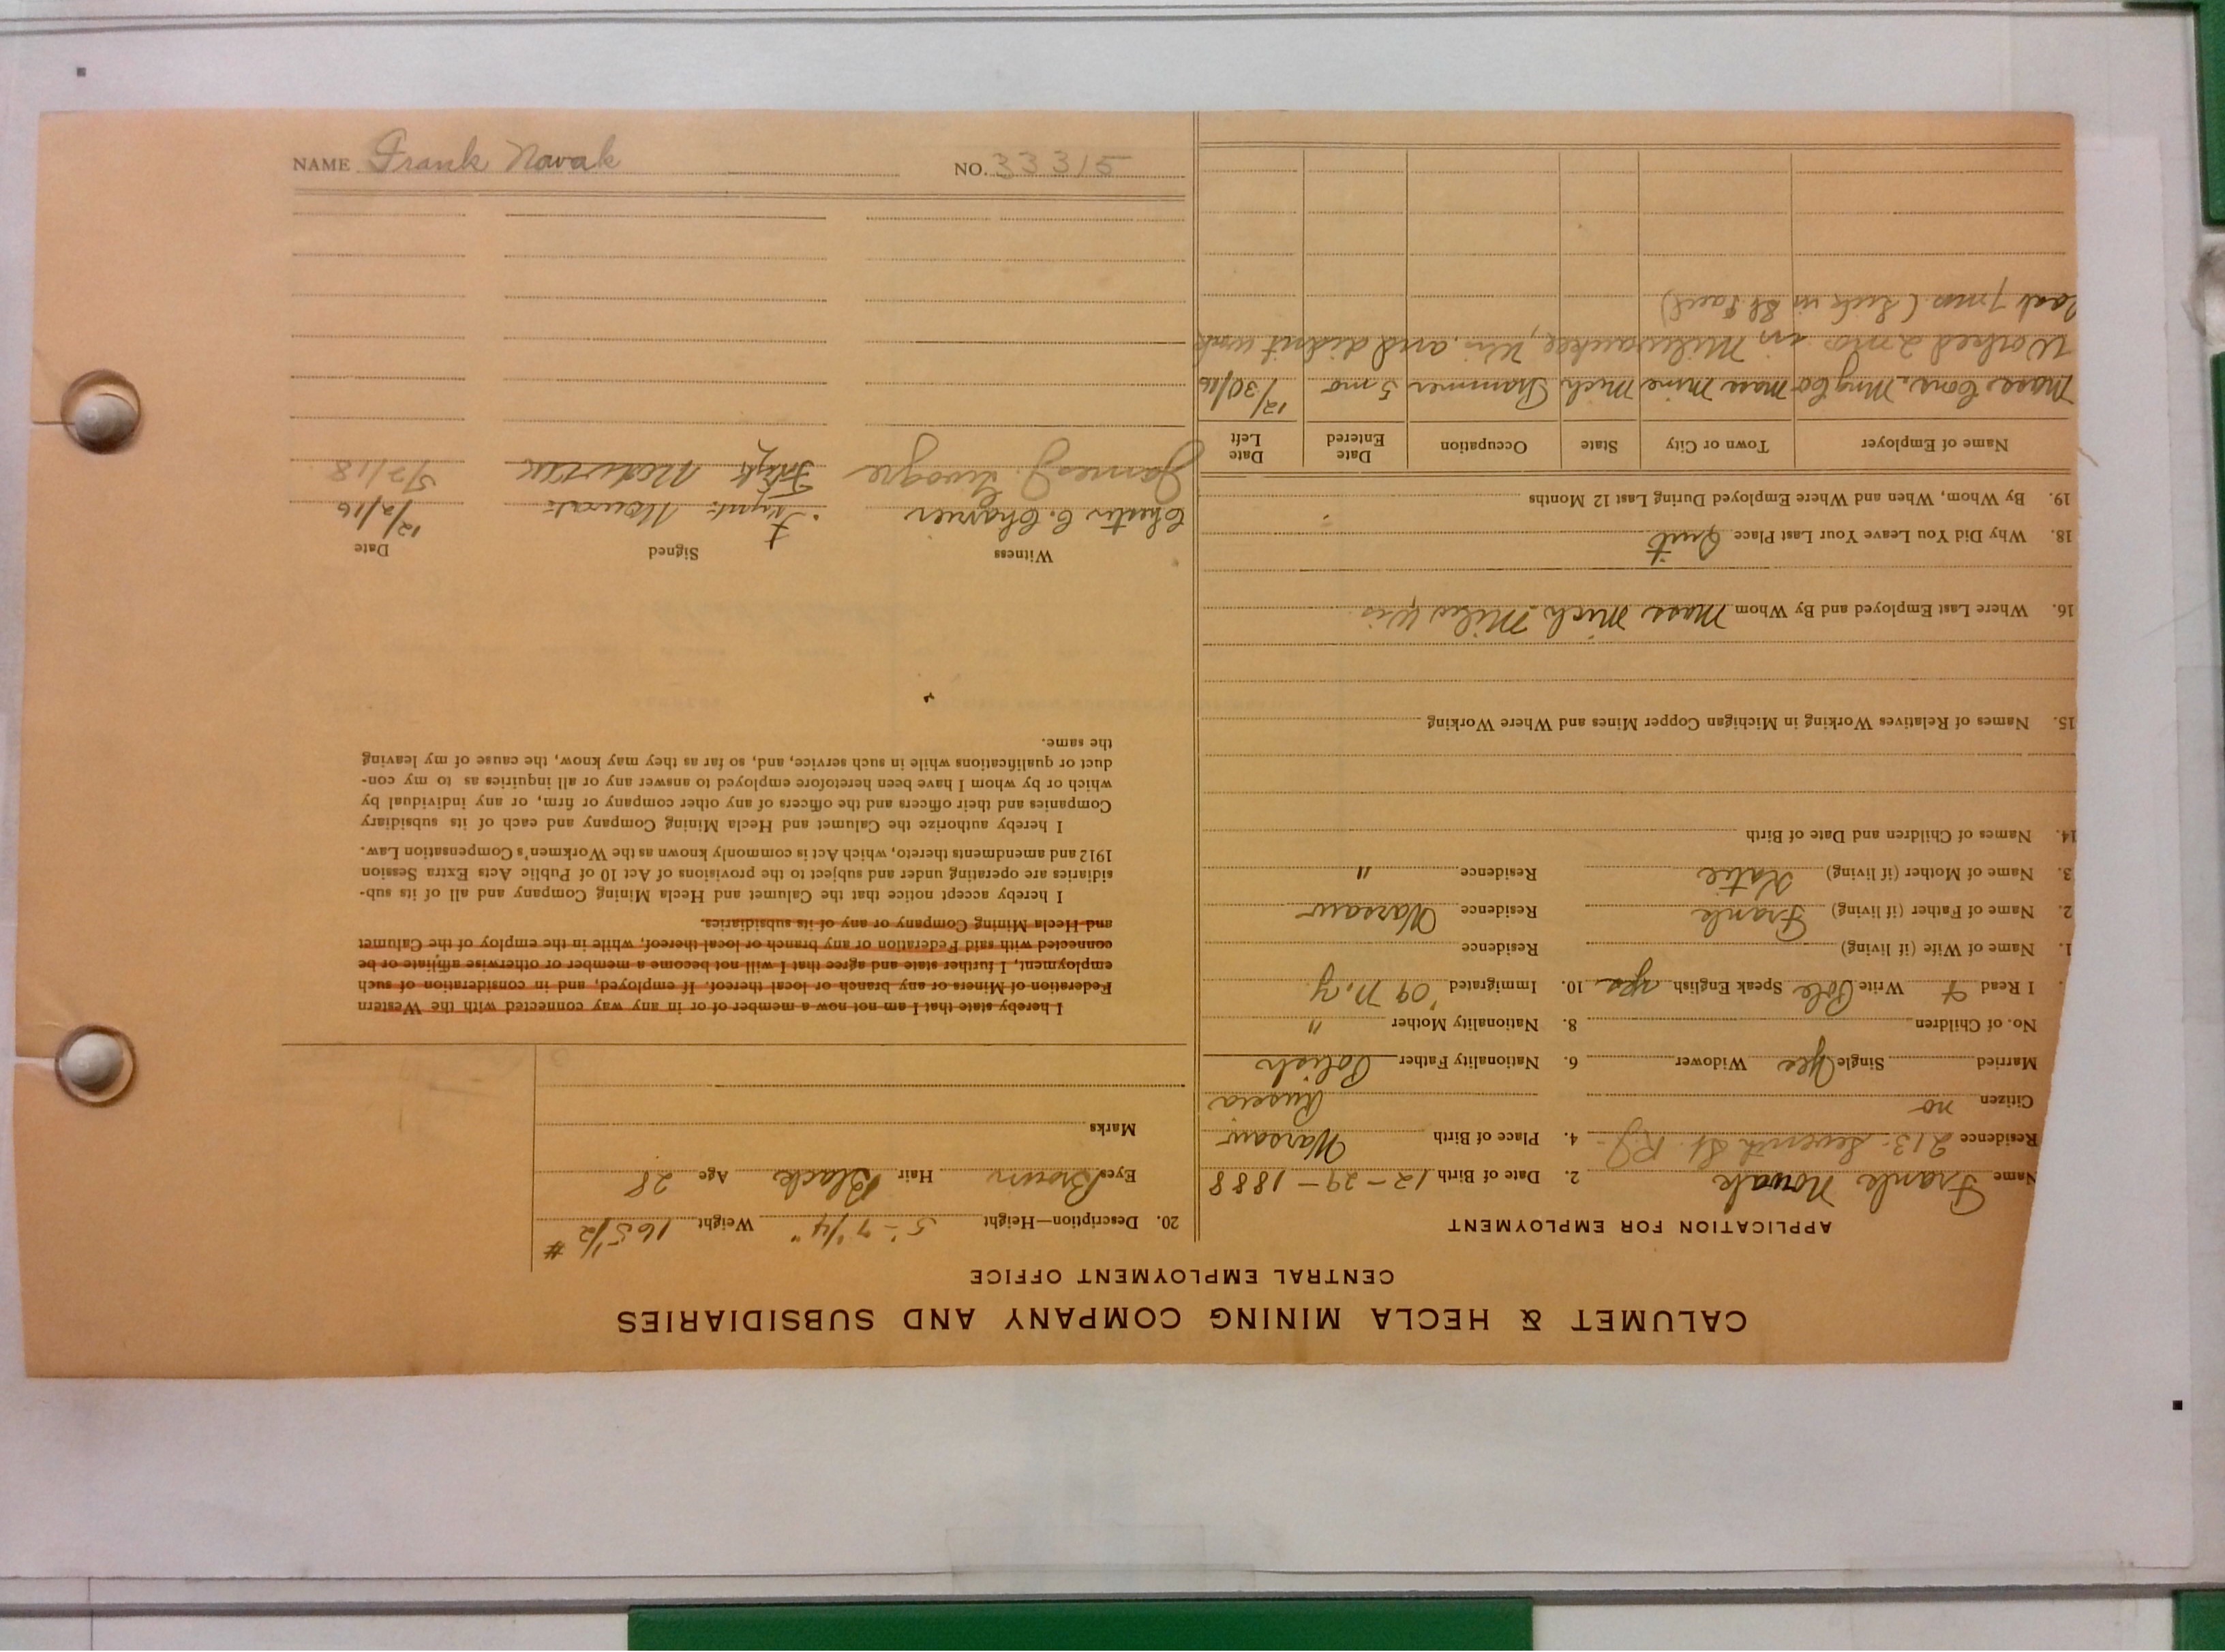 NAME Frank Novak NO. 33315
CALUMET & HECLA MINING COMPANY AND SUBSIDIARIES
CENTRAL EMPLOYMENT OFFICE
APPLICATION FOR EMPLOYMENT
Name Frank Novak 2. Date of Birth 12-29-1888
Residence 213 Seventh St. R.J. 4. Place of Birth Warsaw
Citizen no Russia
Married Single Yes Widower 6. Nationality Father Polish
No. of Children 8. Nationality Mother "
I Read & Write Pole Speak English yes 10. Immigrated '09 N.Y.
1. Name of Wife (if living) Residence
2. Name of Father (if living) Frank Residence Warsaw
3. Name of Mother (if living) Katie Residence "
14. Names of Children and Date of Birth
15. Names of Relatives Working in Michigan Copper Mines and Where Working
16. Where Last Employed and By Whom Mass Mich. Milw Wis.
18. Why Did You Leave Your Last Place Quit
19. By Whom, When and Where Employed During Last 12 Months
Name of Employer Town or City State Occupation Date Entered Date Left
Mass Cons. Mng Co Mass Mine Mich Trammer 5 mo 12/30/16
Worked 2 mos in Milwaukee, Wis. and didn't work
last 7 mos (Sick in St Paul)
20. Description—Height 5'-7 1/4" Weight 165 1/2 #
Eyes Brown Hair Black Age 28
Marks
I hereby state that I am not now a member of or in any way connected with the Western
Federation of Miners or any branch or local thereof. If employed, and in consideration of such
employment, I further state and agree that I will not become a member or otherwise affiliate or be
connected with said Federation or any branch or local thereof, while in the employ of the Calumet
and Hecla Mining Company or any of its subsidiaries.
I hereby accept notice that the Calumet and Hecla Mining Company and all of its sub-
sidiaries are operating under and subject to the provisions of Act 10 of Public Acts Extra Session
1912 and amendments thereto, which Act is commonly known as the Workmen's Compensation Law.
I hereby authorize the Calumet and Hecla Mining Company and each of its subsidiary
Companies and their officers and the officers of any other company or firm, or any individual by
which or by whom I have been heretofore employed to answer any or all inquiries as to my con-
duct or qualifications while in such service, and, so far as they may know, the cause of my leaving
the same.
Witness Signed Date
Chester C. 12/2/16
James J. 5/2/18